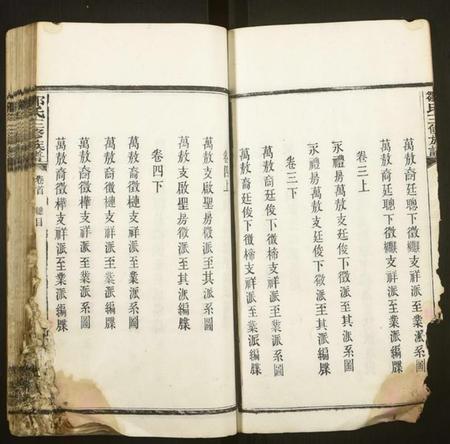 鄒氏三修族譜
萬敖裔廷聰下徽纉支祥派至業派系圖
萬敖裔廷聰下徽纉支祥派至業派編牒
卷三上
永禮房萬敖支廷俊下徽派至其派系圖
永禮房萬敖支廷俊下徽派至其派編牒
卷三下
萬敖裔廷俊下徽楴支祥派至業派系圖
萬敖裔廷俊下徽楴支祥派至業派編牒
卷四上
萬敖支啟聖房徽派至其派系圖
萬敖支啟聖房徽派至其派編牒
卷四下
萬敖裔徽槤支祥派至業派系圖
萬敖裔徽槤支祥派至業派編牒
萬敖裔徽樺支祥派至業派系圖
萬敖裔徽樺支祥派至業派編牒
鄒氏三修族譜
卷首
總目